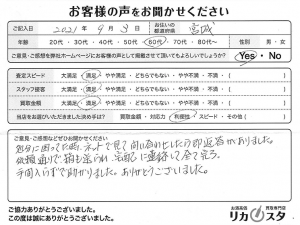 お客様の声をお聞かせください
ご記入日 2021年 9月 3日 お住いの都道府県 宮城
年齢 20代・30代・40代・50代・60代・70代・80代〜 性別 男・女
ご意見・ご感想を弊社ホームページにお客様の声として掲載させて頂いてもよろしいでしょうか? Yes・No
査定スピード 大満足・満足・やや満足・どちらでもない・やや不満・不満・( )
スタッフ接客 大満足・満足・やや満足・どちらでもない・やや不満・不満・( )
買取金額 大満足・満足・やや満足・どちらでもない・やや不満・不満・( )
当店をお選びいただきました決め手は? 買取金額・対応力・利便性・スピード・その他( )
ご意見・ご感想などぜひお聞かせください
処分に困ってた時、ネットで見て問い合わせしたら即返答がありました。
依頼通りで箱も送られ、宅配に連絡して全て完了。
手間入らずで助かりました。ありがとうございました。
ご協力ありがとうございました。
この度は誠にありがとうございました。
お酒高価買取専門店
リカスタ